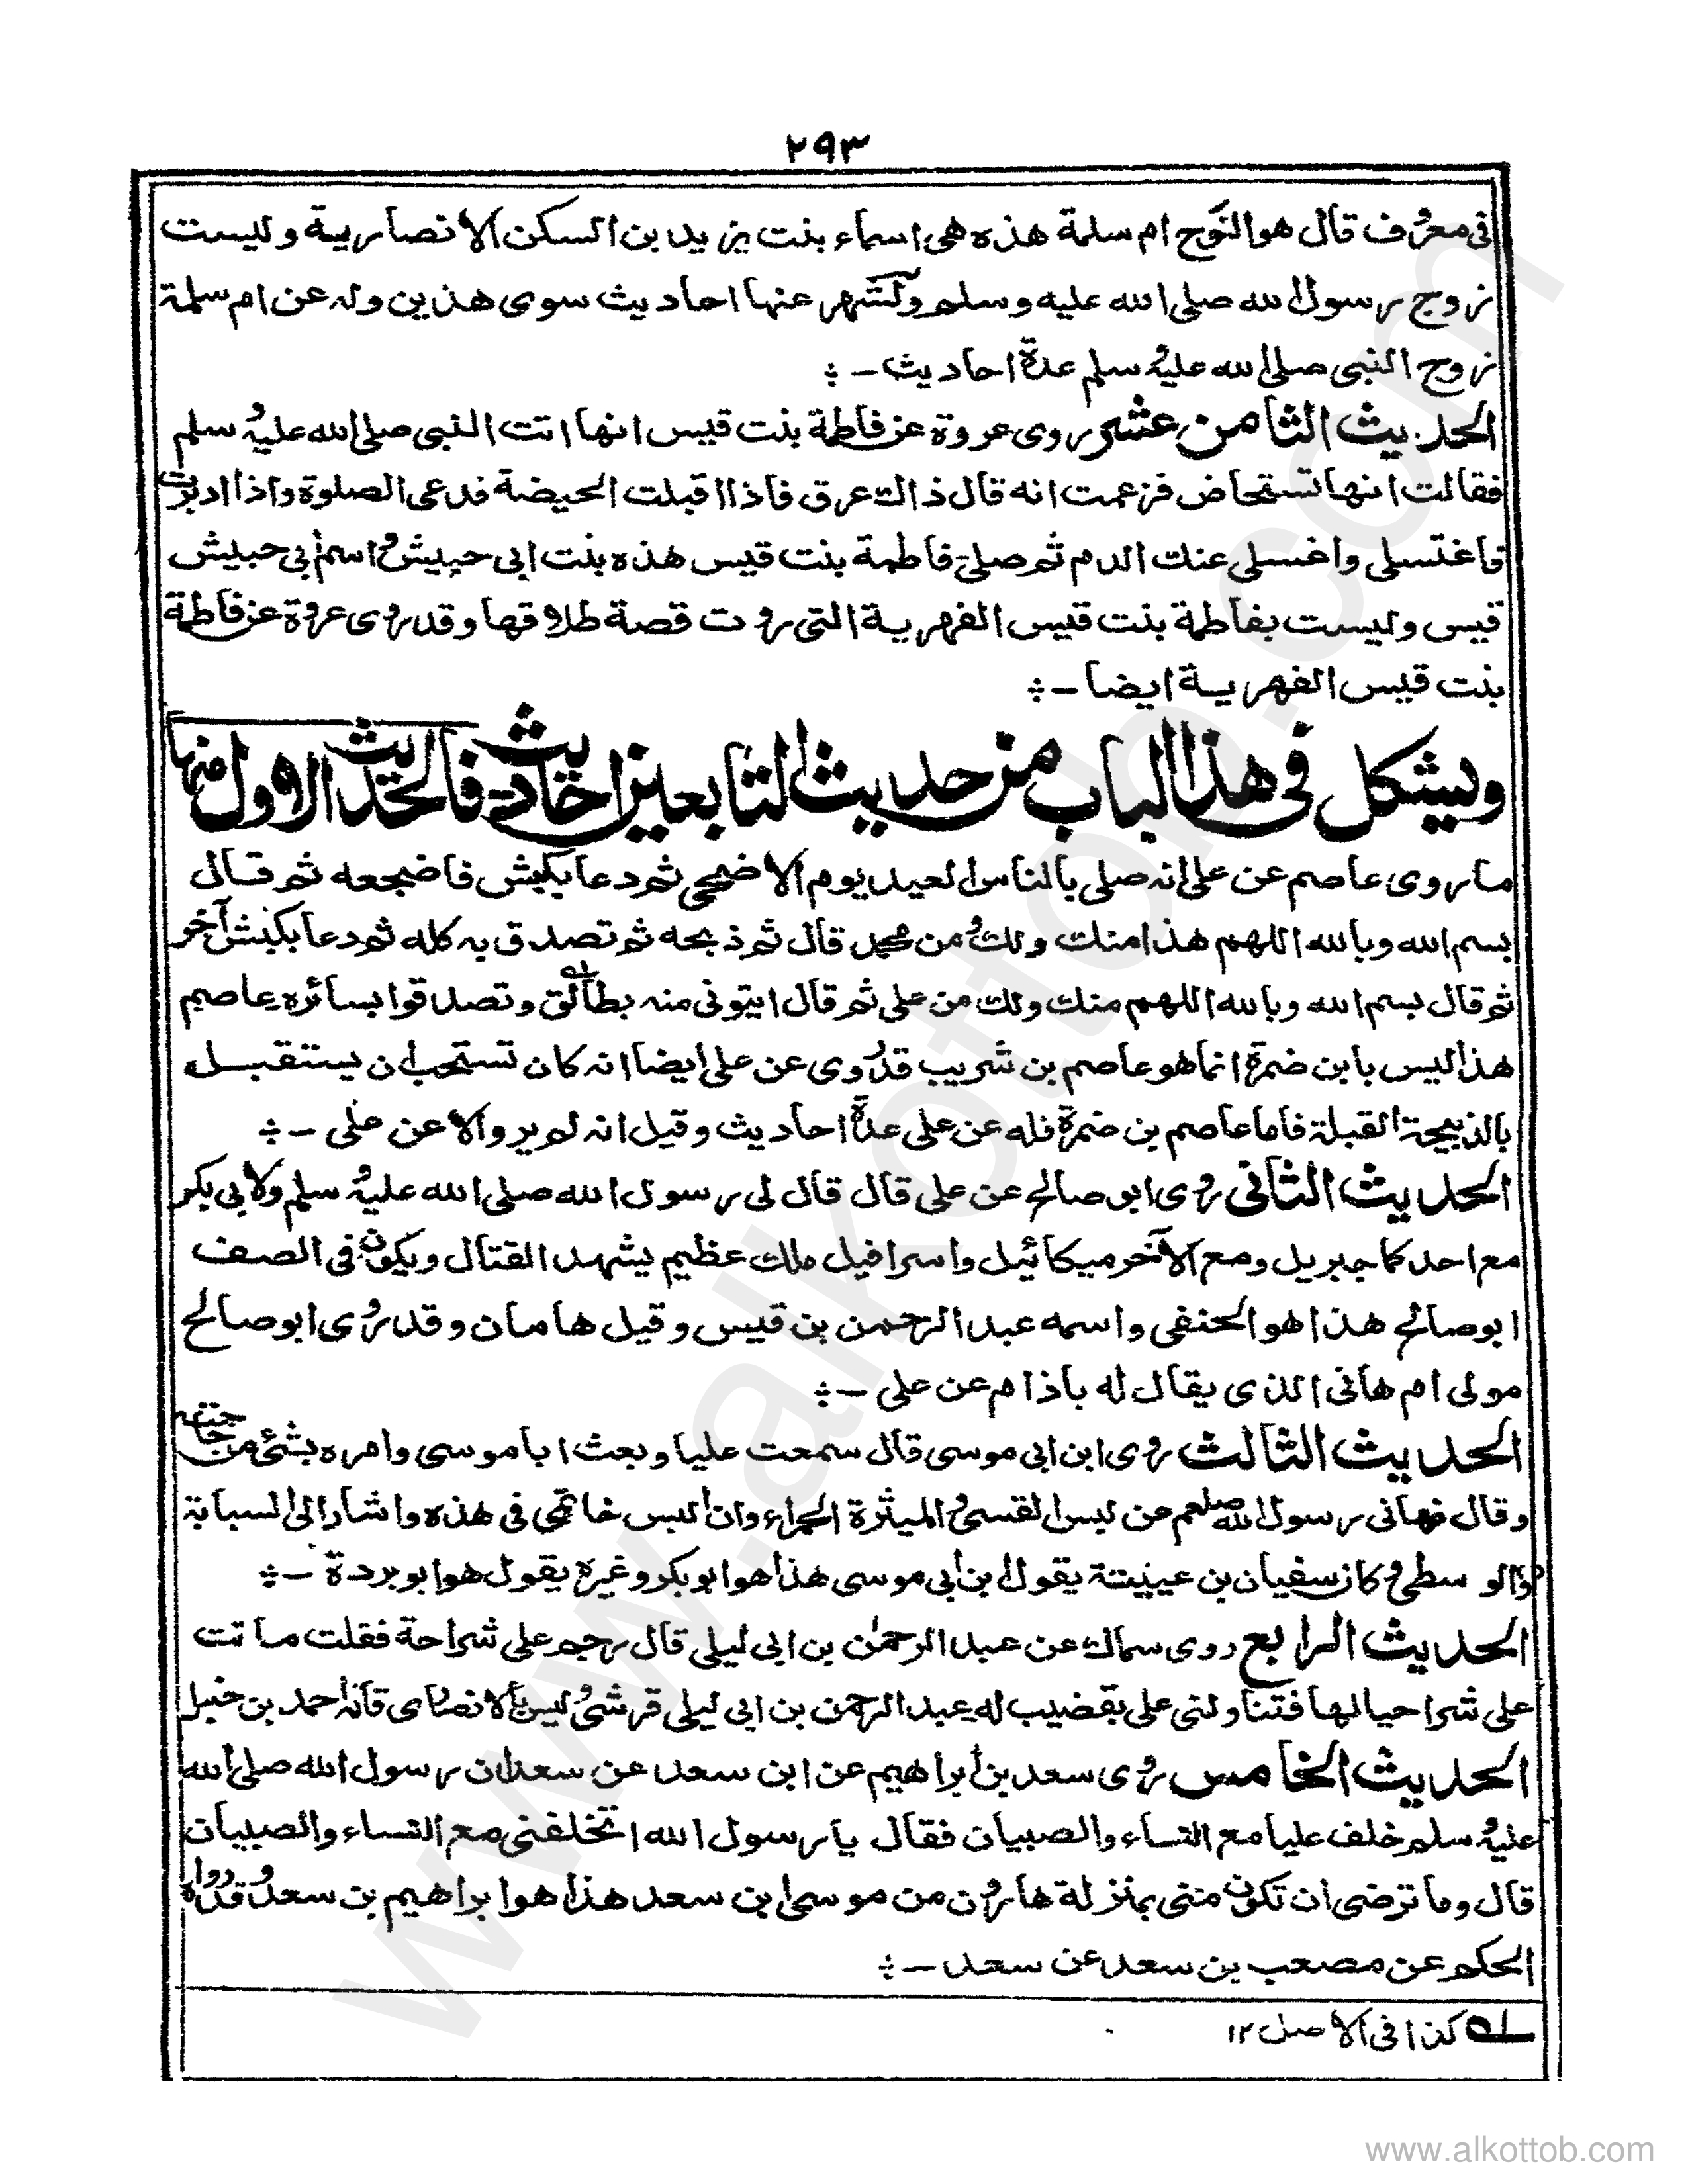 ٢٩٣
في معروف قال هو النوح ام سلمة هذه هي اسماء بنت يزيد بن السكن الانصارية وليست
زوج رسول الله صلى الله عليه وسلم ولشهر عنها احاديث سوى هذين وله عن ام سلمة
زوج النبي صلى الله عليه وسلم عدة احاديث -
الحديث الثامن عشر روى عروة عن فاطمة بنت قيس انها اتت النبي صلى الله عليه وسلم
فقالت انها تستحاض فزعمت انه قال ذالك عرق فاذا اقبلت الحيضة فدعى الصلوة واذا ادبرت
فاغتسلى واغسلى عنك الدم ثم صلى فاطمة بنت قيس هذه بنت ابي حبيش واسم ابي حبيش
قيس وليست بفاطمة بنت قيس الفهرية التي روت قصة طلاقها وقد روى عروة عن فاطمة
بنت قيس الفهرية ايضا -
ويشكل في هذا الباب من حديث التابعين احاديث فالحديث الاول منها
ما روى عاصم عن على انه صلى بالناس العيد يوم الاضحى ثم دعا بكبش فاضجعه ثم قال
بسم الله وبالله اللهم هذا منك ولك ومن محمد قال ثم ذبحه ثم تصدق به كله ثم دعا بكبش آخر
ثم قال بسم الله وبالله اللهم منك ولك من على ثم قال ايتونى منه بطائق وتصدقوا بسائره عاصم
هذا ليس بابن ضمرة انما هو عاصم بن شريب قد روى عن على ايضا انه كان تستحب ان يستقبل
بالذبيحة القبلة فاما عاصم بن ضمرة فله عن على عدة احاديث وقيل انه لم يرو الا عن على -
الحديث الثانى روى ابو صالح عن على قال قال لى رسول الله صلى الله عليه وسلم ولابى بكر
مع احدكما جبريل ومع الآخر ميكائيل واسرافيل ملك عظيم يشهد القتال ويكون فى الصف
ابو صالح هذا هو الحنفى واسمه عبد الرحمن بن قيس وقيل هامان وقد روى ابو صالح
مولى ام هانى الذى يقال له باذام عن على -
الحديث الثالث روى ابن ابى موسى قال سمعت عليا وبعث ابا موسى وامره بشئ من حاجته
وقال نهانى رسول الله صلعم من لبس القسى والميثرة الحمراء وان البس خاتمى فى هذه واشار الى السبابة
والوسطى وكان سفيان بن عيينة يقول ابن أبي موسى هذا هو ابو بكر وغيره يقول هو ابو بردة -
الحديث الرابع روى سماك عن عبد الرحمن بن ابى ليلى قال رجم على شراحة فقلت ماتت
على شر احيالها فتناولنى على بقضيب له عبد الرحمن بن ابى ليلى قرشى وليس بالانصارى قاله احمد بن حنبل
الحديث الخامس روى سعد بن ابراهيم عن ابن سعد عن سعد ان رسول الله صلى الله
عليه وسلم خلف عليا مع النساء والصبيان فقال يا رسول الله اتخلفنى مع النساء والصبيان
قال وما ترضى ان تكون منى بمنزلة هارون من موسى ابن سعد هذا هو ابراهيم بن سعد وقد رواه
الحكم عن مصعب بن سعد عن سعد -
له كذا فى الاصل ١٢
www.alkottob.com
www.alkottob.com